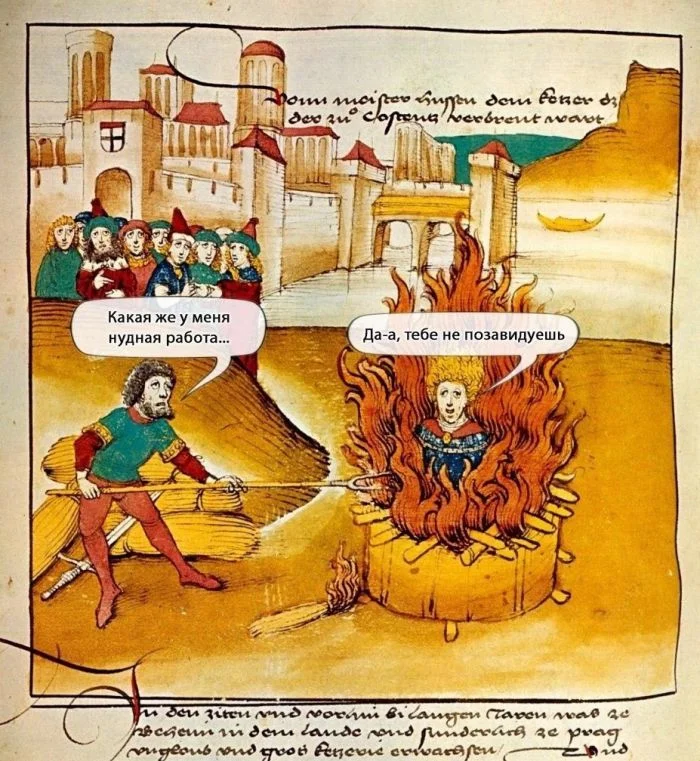 Vonn moister hussen dem ketzer dz
der zů Costentz verbrent wart
Какая же у меня
нудная работа...
Да-а, тебе не позавидуешь
In den ziten vnd vor hin bi langen Jaren was ze
Behem in dem lande vnd sunderlich ze prag
vngloub vnd gros ketzerie erwachsen vnd